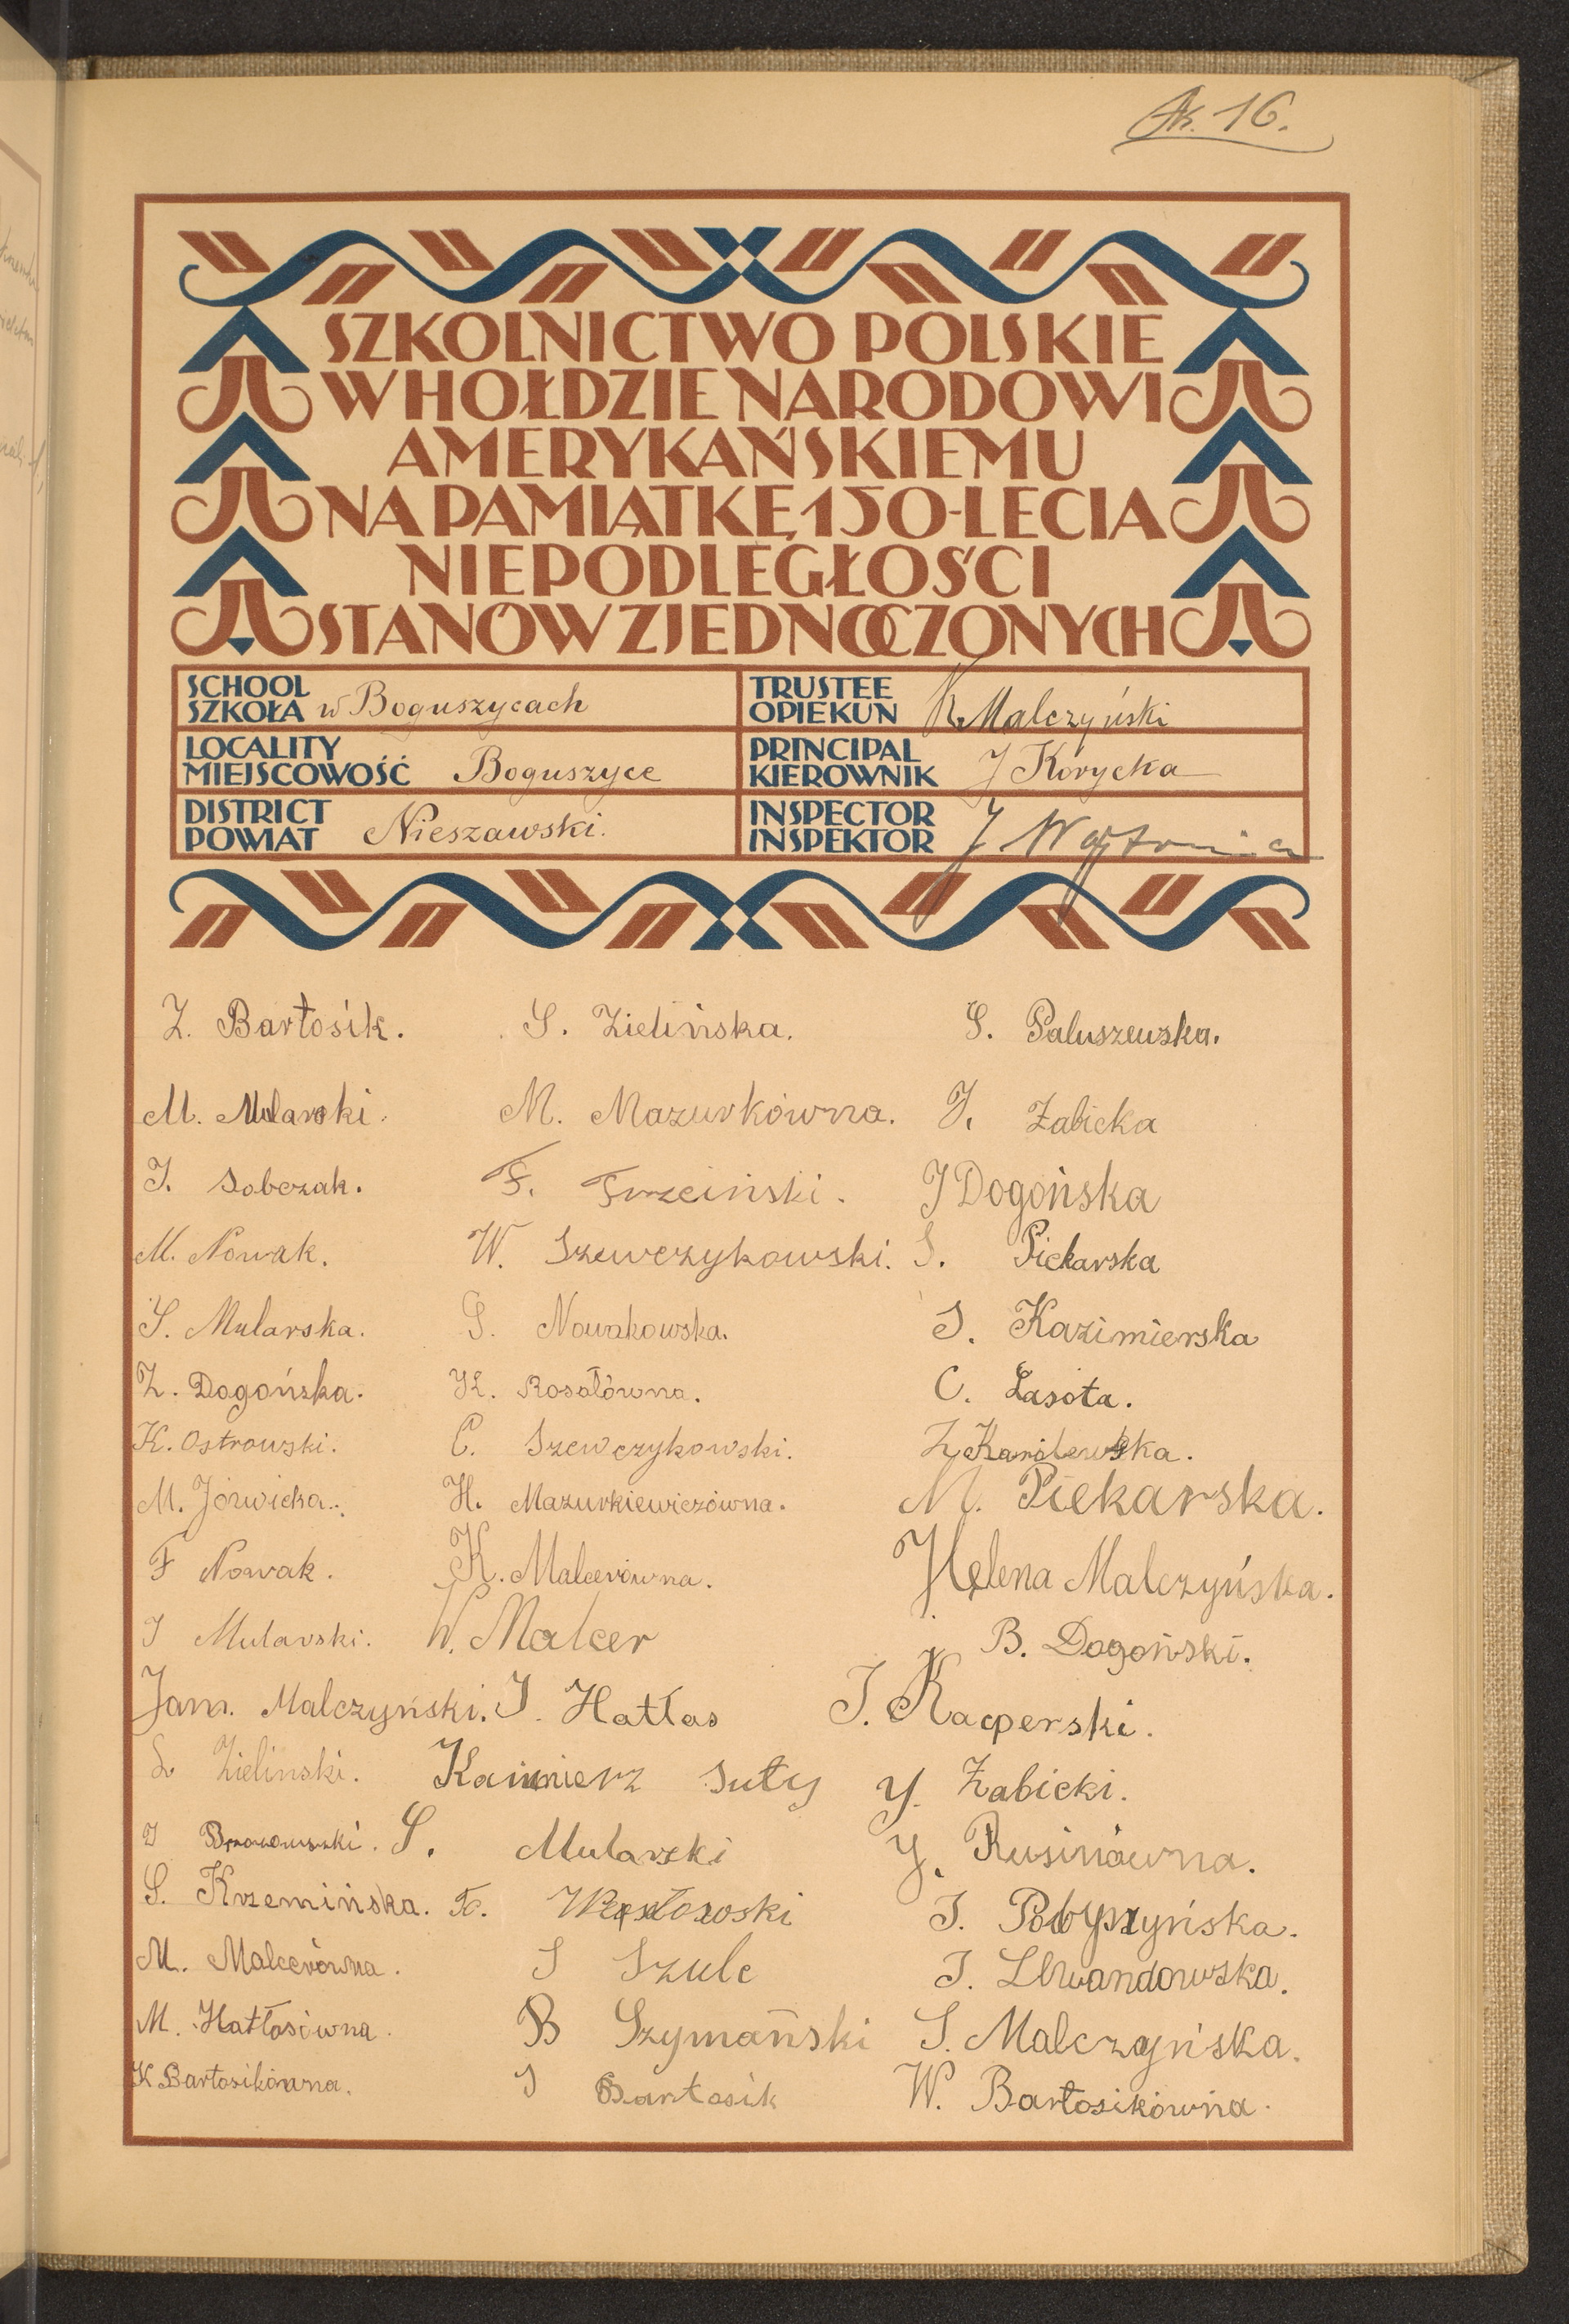 Ak. 16.
SZKOLNICTWO POLSKIE
W HOŁDZIE NARODOWI
AMERYKAŃSKIEMU
NA PAMIĄTKĘ 150-LECIA
NIEPODLEGŁOŚCI
STANÓW ZJEDNOCZONYCH
SCHOOL
SZKOŁA w Boguszycach
TRUSTEE
OPIEKUN K. Malczyński
LOCALITY
MIEJSCOWOŚĆ Boguszyce
PRINCIPAL
KIEROWNIK J Korycka
DISTRICT
POWIAT Nieszawski.
INSPECTOR
INSPEKTOR J
Z. Bartosik. S. Zielińska. S. Paluszewska.
M. Mularski. M. Mazurkówna. J. Żabicka
J. Sobczak. F. Trzciński. J Dogońska
M. Nowak. W. Szewczykowski. S. Piekarska
S. Mularska. G. Nowakowska. S. Kazimierska
Z. Dogońska. H. Rosołówna. C. Lasota.
K. Ostrowski. C. Szewczykowski. Z Karólewska.
M. Józwicka. H. Mazurkiewiczówna. M. Piekarska.
F Nowak. K. Malcerówna. Helena Malczyńska.
J Mularski. W. Malcer B. Dogoński.
Jan. Malczyński. J. Hatłas J. Kacperski.
L Zieliński. Kazimierz Suty J. Żabicki.
J S. Mularski J. Rusinówna.
S. Krzemińska. J.
M. Malcerówna. J Szulc J. Lewandowska.
M. Hatłasówna. B Szymański S. Malczyńska.
K Bartosikówna. J Bartosik W. Bartosikówna.